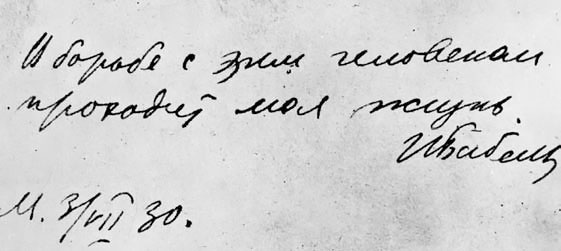 В борьбе с этим человеком
проходит моя жизнь.
И. Бабель
М. 3/VII 30.